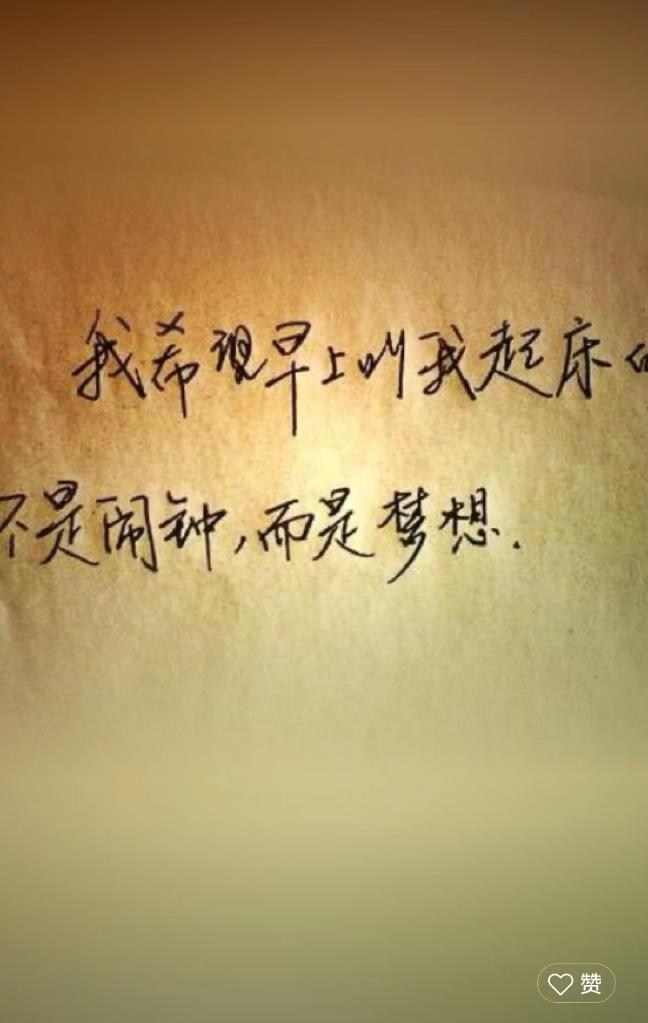 我希望早上叫我起床的
不是闹钟,而是梦想.
赞